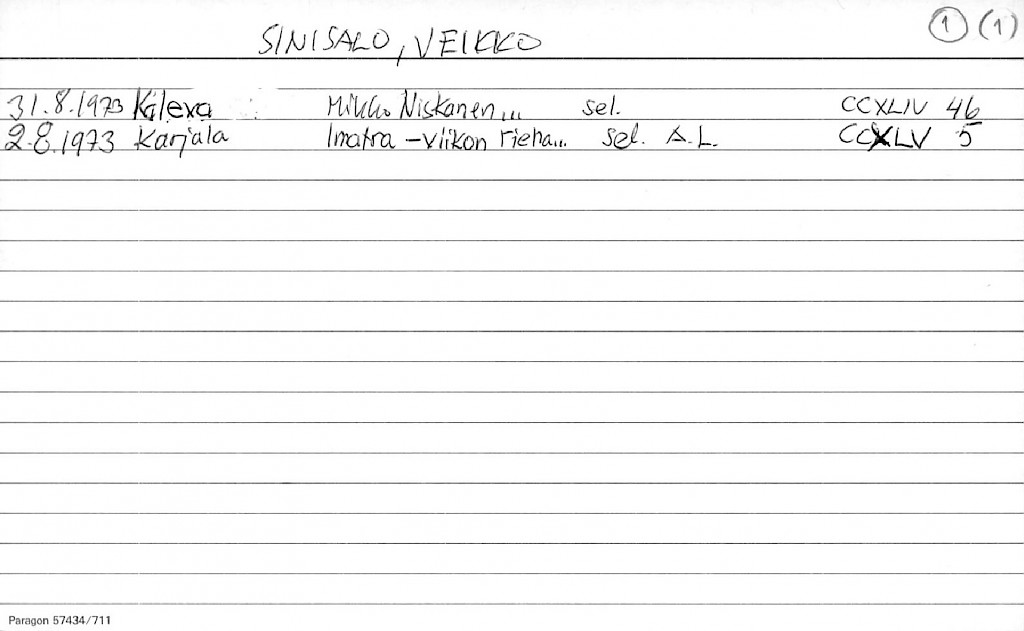 SINISALO, VEIKKO
1 (1)
31.8.1973 Kaleva Mikko Niskanen... sel. CCXLIV 46
2.8.1973 Karjala Imatra-viikon rieha... sel. A.L. CCXLV 5
Paragon 57434/711